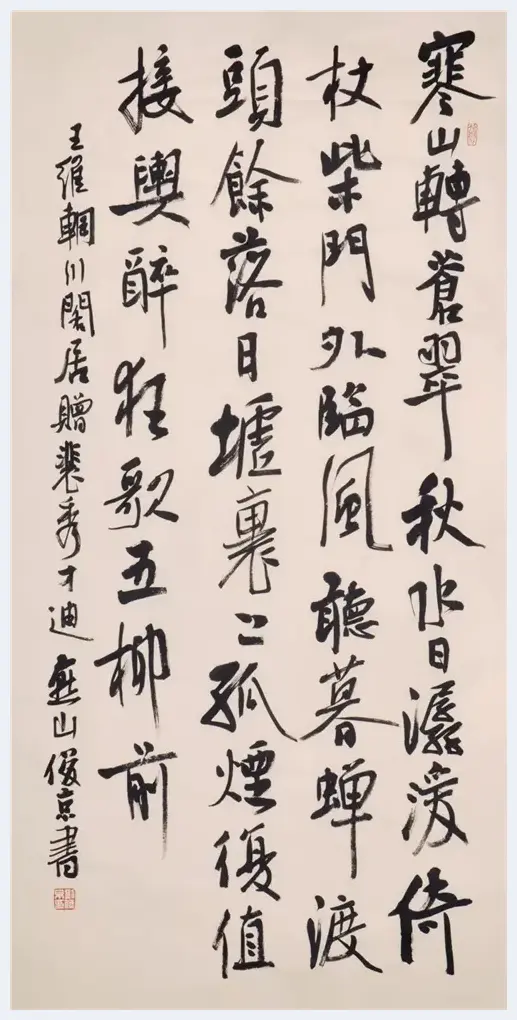 寒山轉蒼翠秋水日潺湲倚
杖柴門外臨風聽暮蝉渡
頭餘落日墟裏上孤煙復值
接輿醉狂歌五柳前
王維輞川閑居贈裴秀才迪 山俊京書